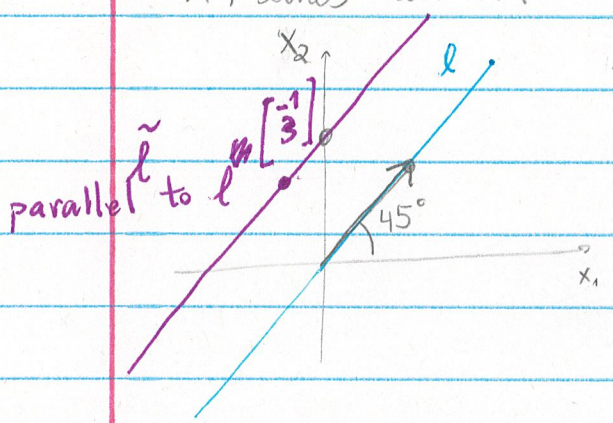 x₂
ℓ
[-1
3]
ℓ̃
parallel to ℓ
45°
x₁